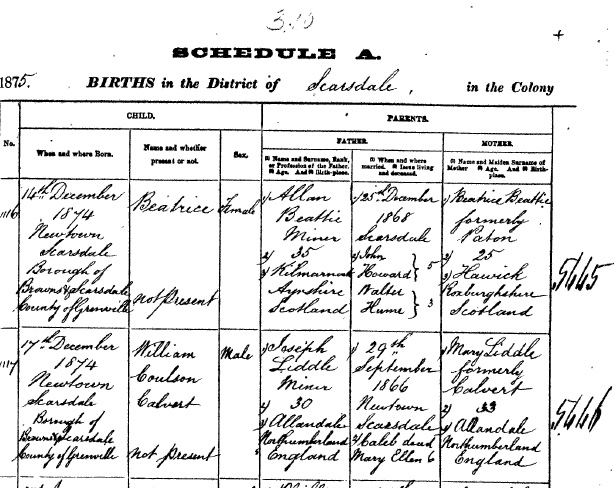 310
SCHEDULE A.
1875. BIRTHS in the District of Scarsdale, in the Colony
CHILD. PARENTS.
FATHER. MOTHER.
No.
When and where Born.
Name and whether
present or not.
Sex.
(1) Name and Surname, Rank,
or Profession of the Father.
(2) Age. And (3) Birth-
place.
(1) When and where
married. (2) Issue living
and deceased.
(1) Name and Maiden Surname of
Mother (2) Age. And (3) Birth-
place.
1116
14th December
1874
Newtown
Scarsdale
Borough of
Browns & Scarsdale
County of Grenville
Beatrice
Not Present
Female
1) Allan
Beattie
Miner
2) 35
3) Kilmarnock
Ayrshire
Scotland
1) 25th December
1868
Scarsdale
2) John
Howard } 5
Walter
Hume } 3
1) Beatrice Beattie
formerly
Paton
2) 25
3) Hawick
Roxburghshire
Scotland
5445
1117
17th December
1874
Newtown
Scarsdale
Borough of
Browns & Scarsdale
County of Grenville
William
Coulson
Calvert
Not Present
Male
1) Joseph
Liddle
Miner
2) 30
3) Allandale
Northumberland
England
1) 29th
September
1866
Newtown
Scarsdale
2) Caleb dead
Mary Ellen 6
1) Mary Liddle
formerly
Calvert
2) 33
3) Allandale
Northumberland
England
5446